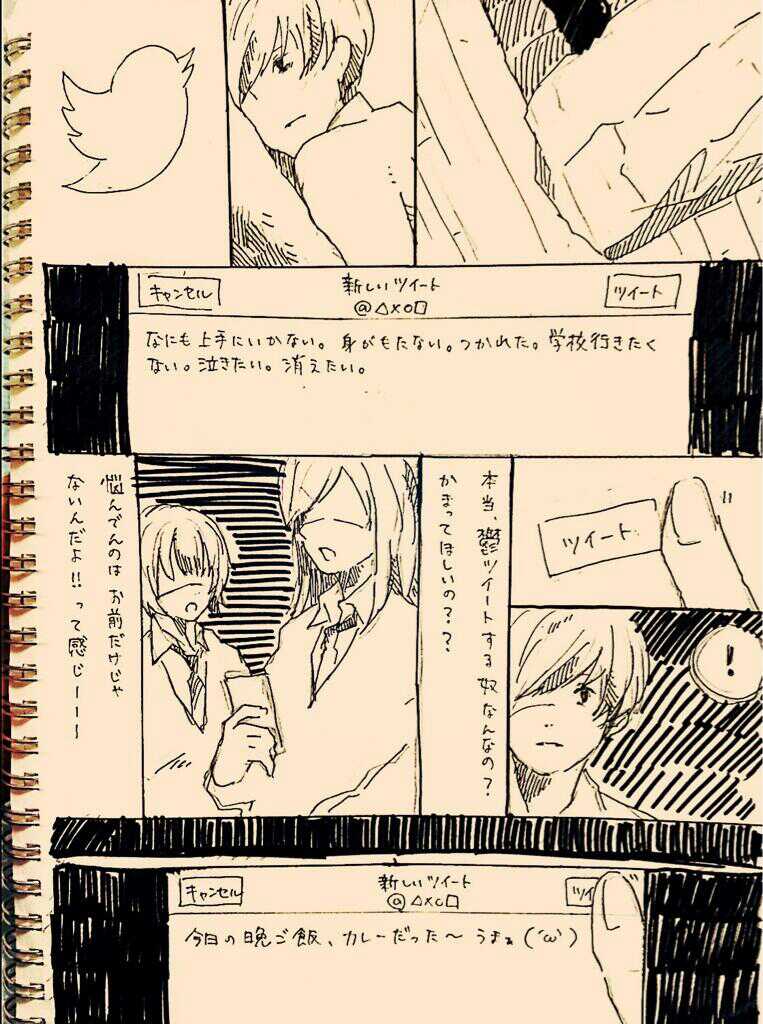 キャンセル
新しいツイート
@△×○□
ツイート
なにも上手にいかない。身がもたない。つかれた。学校行きたく
ない。泣きたい。消えたい。
ツイート
!
本当、鬱ツイートする奴なんなの?
かまってほしいの??
悩んでんのは お前だけじゃ
ないんだよ!!って感じーー〜
キャンセル
新しいツイート
@△×○□
ツイ
今日の晩ご飯、カレーだった〜 うまぁ('ω')